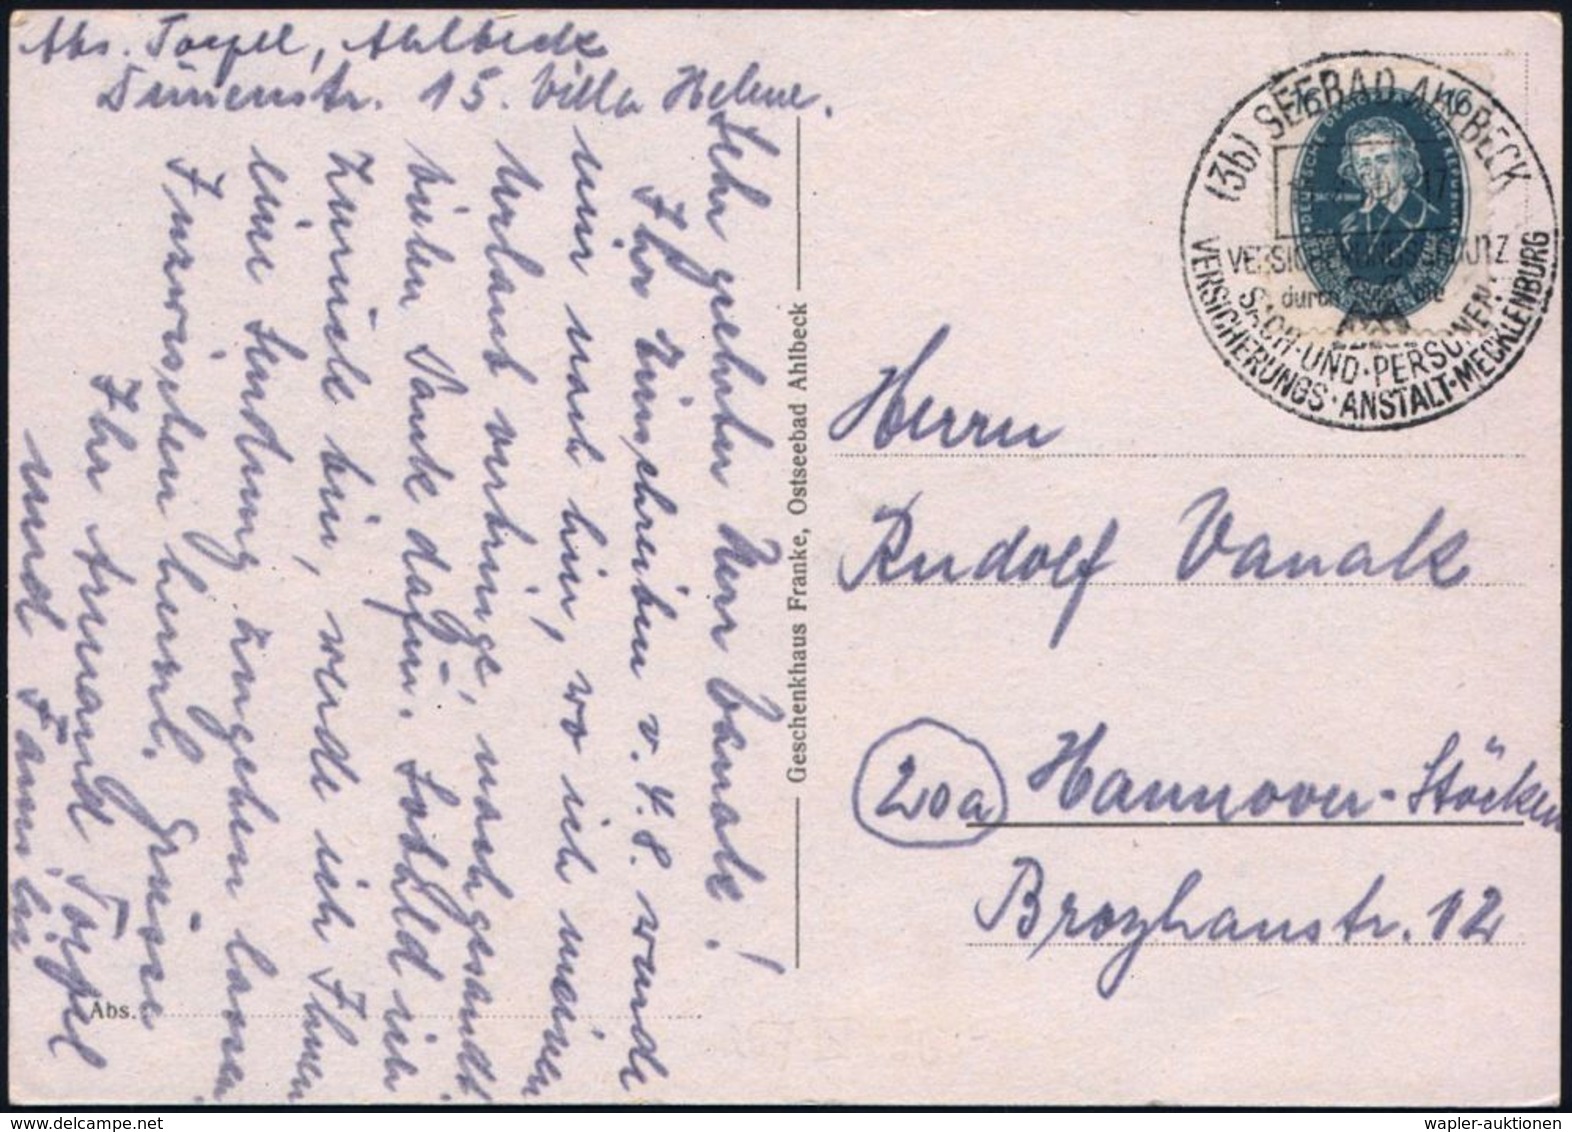 Abs. Toepel, Ahlbeck
Dünenstr. 15. Villa Helene.
Sehr geehrter Herr Vanale!
Ihr Einschreiben v. 4.8. wurde
mir nach hier, wo ich meinen
Urlaub verbringe, nachgesandt.
Vielen Dank dafür. Sobald ich
zurück bin, werde ich Ihnen
eine Sendung zugehen lassen.
Inzwischen herzl. Grüsse
Ihr Armand Toepel
und Familie
Abs.
Geschenkhaus Franke, Ostseebad Ahlbeck
(3b) SEEBAD AHLBECK
17
VERSICHERUNGSSCHUTZ
durch die
SACH-UND-PERSONEN-
VERSICHERUNGS-ANSTALT-MECKLENBURG
16 16
DEUTSCHE DEMOKRATISCHE REPUBLIK
Herrn
Rudolf Vanale
20a Hannover-Stöcken
Brozhanstr. 12
wapler-auktionen